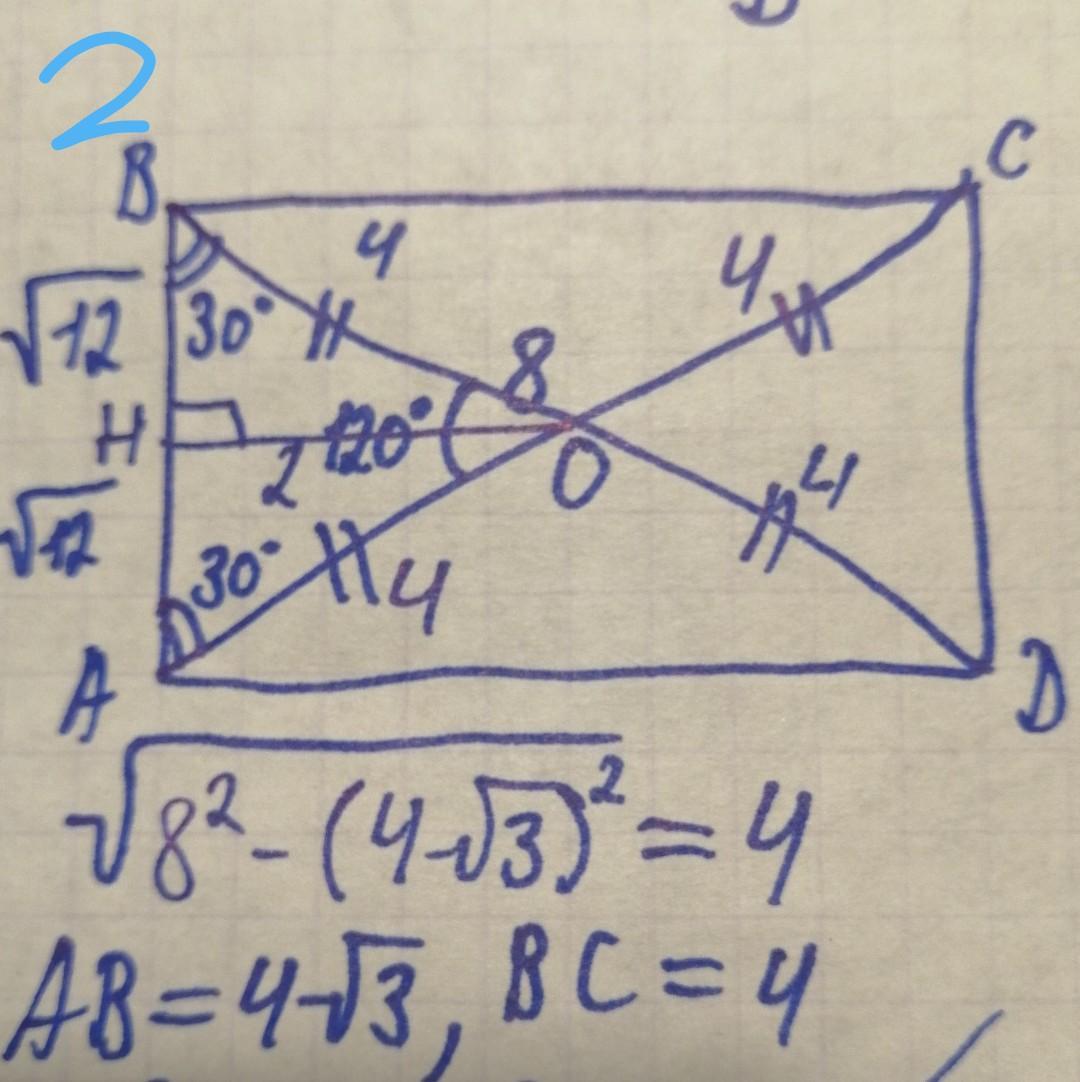 2
B
C
4
4
√12
30°
8
H
120°
2
O
4
√12
30°
4
A
D
√8² - (4√3)² = 4
AB = 4√3, BC = 4